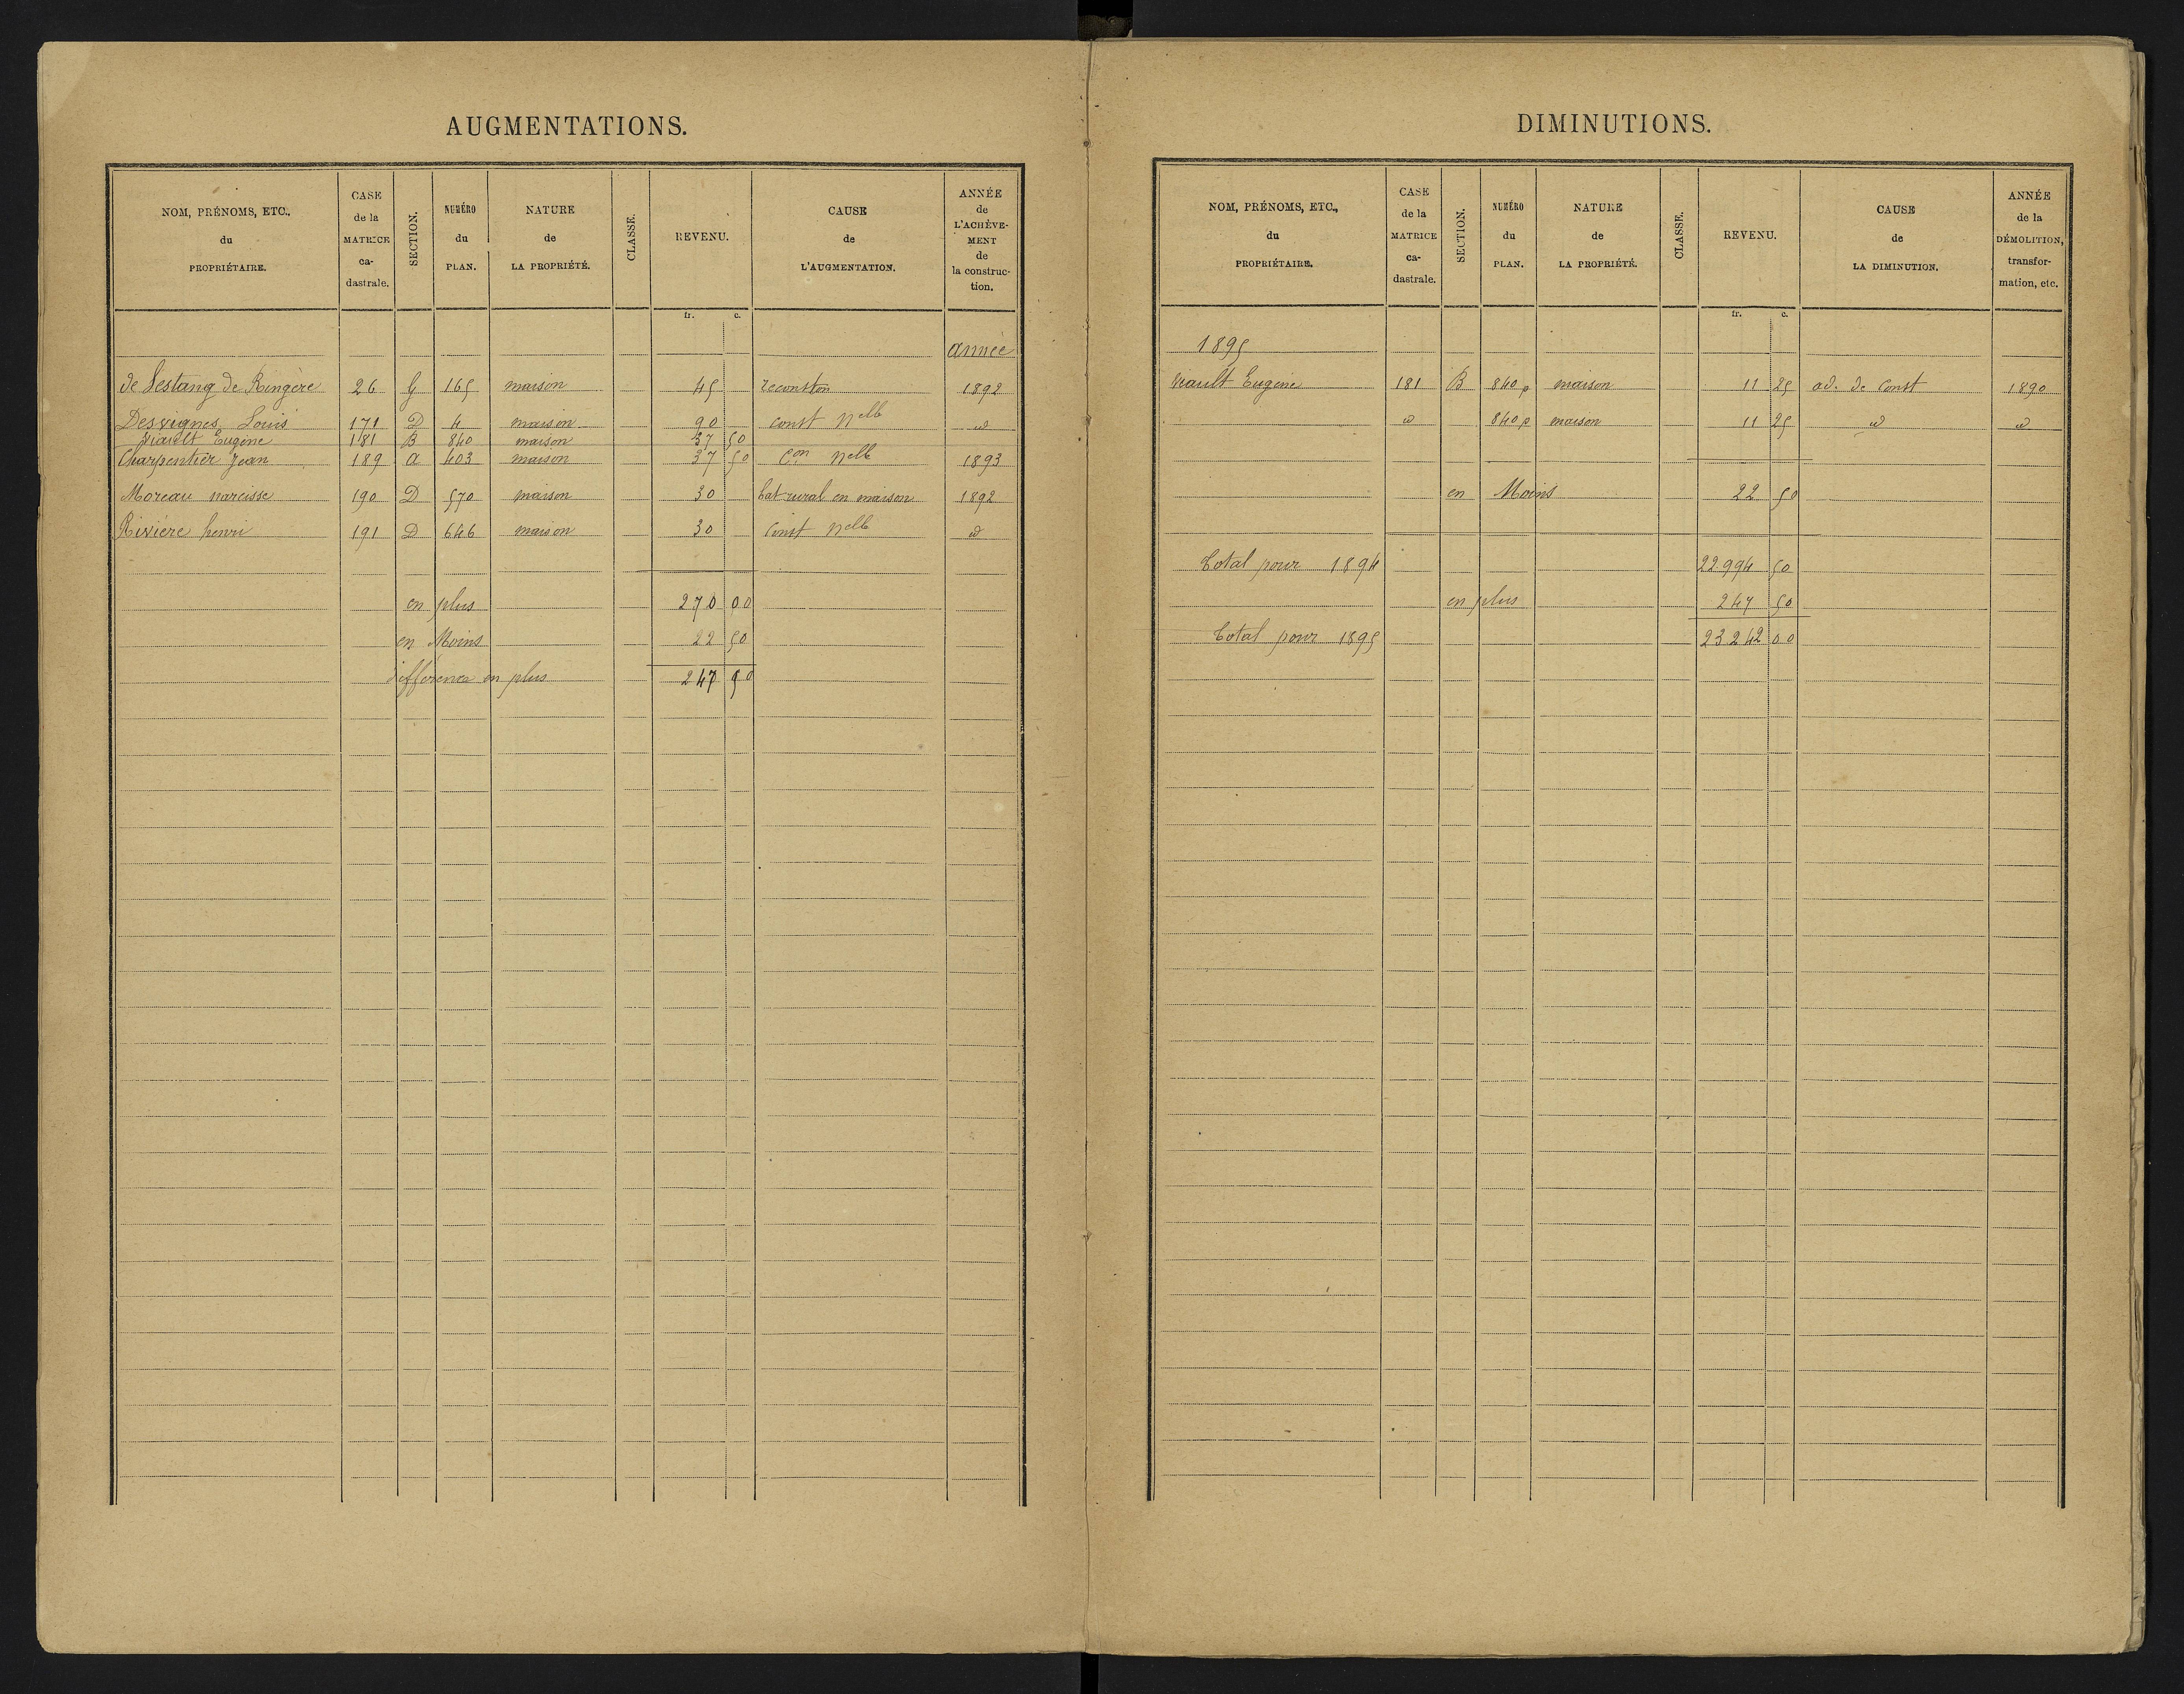 AUGMENTATIONS.
NOM, PRÉNOMS, ETC., du PROPRIÉTAIRE. CASE de la MATRICE ca-dastrale. SECTION. NUMÉRO du PLAN. NATURE de LA PROPRIÉTÉ. CLASSE. REVENU. CAUSE de L'AUGMENTATION. ANNÉE de L'ACHÈVE-MENT de la construc-tion.
fr. c.
année
de Lestang de Ringère 26 G 165 maison 45 reconston 1892
Desvignes Louis 171 D 4 maison 90 const nelle d
Viault Eugène 181 B 840 maison 37 50
Charpentier Jean 189 a 403 maison 37 50 Con nelle 1893
Moreau narcisse 190 D 570 maison 30 bat rural en maison 1892
Rivière henri 191 D 646 maison 30 Const nelle d
en plus 270 00
en Moins 22 50
différence en plus 247 50
DIMINUTIONS.
NOM, PRÉNOMS, ETC., du PROPRIÉTAIRE. CASE de la MATRICE ca-dastrale. SECTION. NUMÉRO du PLAN. NATURE de LA PROPRIÉTÉ. CLASSE. REVENU. CAUSE de LA DIMINUTION. ANNÉE de la DÉMOLITION, transfor-mation, etc.
fr. c.
1895
Viault Eugène 181 B 840 p maison 11 25 ad. de Const 1890
d 840 p maison 11 25 d d
en Moins 22 50
Total pour 1894 22994 50
en plus 247 50
Total pour 1895 23242 00